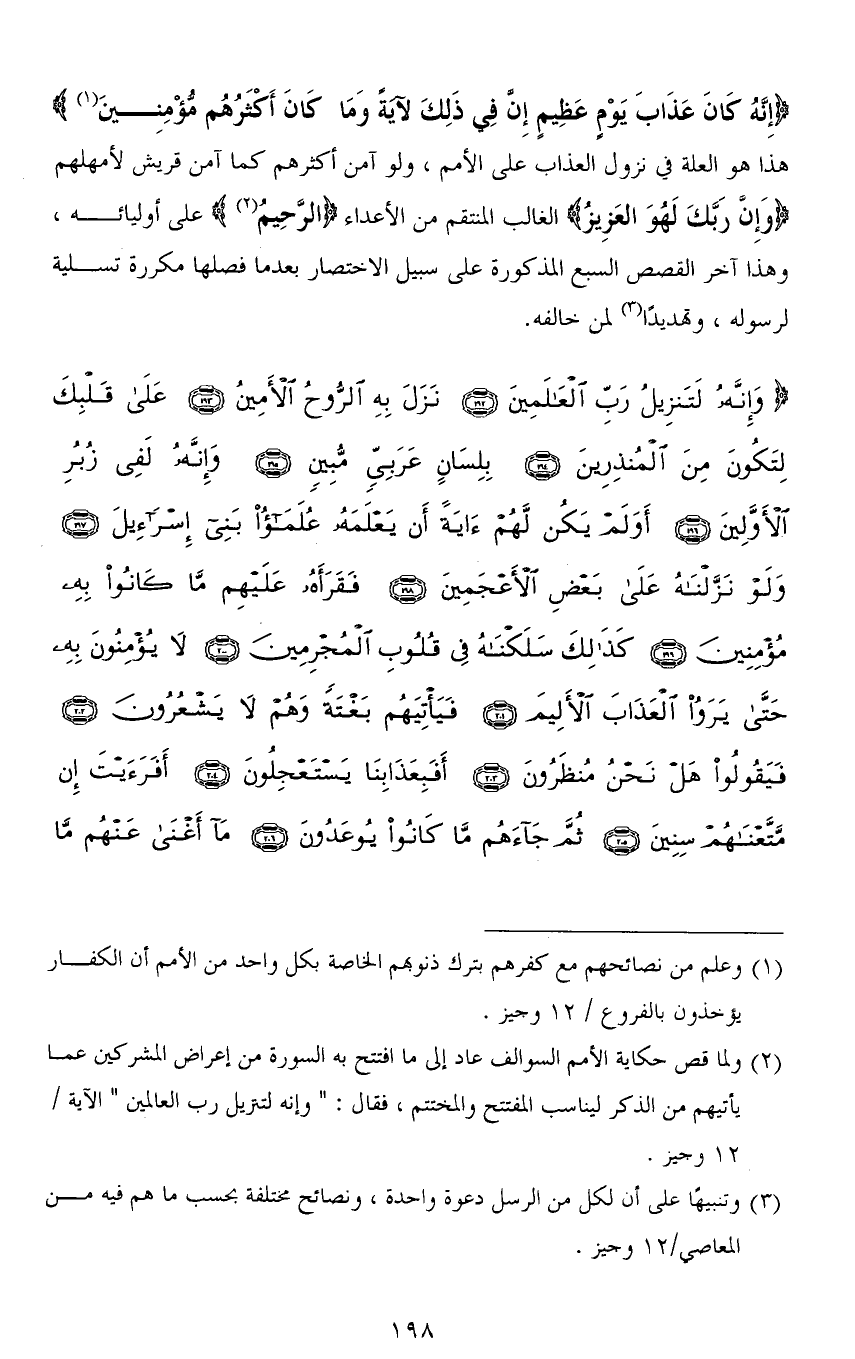 ﴿إِنَّهُ كَانَ عَذَابَ يَوْمٍ عَظِيمٍ إِنَّ فِي ذَلِكَ لآيَةً وَمَا كَانَ أَكْثَرُهُم مُّؤْمِنِـــينَ(١)﴾
هذا هو العلة في نزول العذاب على الأمم ، ولو آمن أكثرهم كما آمن قريش لأمهلهم
﴿وَإِنَّ رَبَّكَ لَهُوَ العَزِيزُ﴾ الغالب المنتقم من الأعداء ﴿الرَّحِيمُ(٢)﴾ على أوليائـــه ،
وهذا آخر القصص السبع المذكورة على سبيل الاختصار بعدما فصلها مكررة تســلية
لرسوله ، وتهديدًا(٣) لمن خالفه.
﴿ وَإِنَّهُۥ لَتَنزِيلُ رَبِّ ٱلْعَـٰلَمِينَ ١٩٢ نَزَلَ بِهِ ٱلرُّوحُ ٱلْأَمِينُ ١٩٣ عَلَىٰ قَلْبِكَ
لِتَكُونَ مِنَ ٱلْمُنذِرِينَ ١٩٤ بِلِسَانٍ عَرَبِىٍّ مُّبِينٍ ١٩٥ وَإِنَّهُۥ لَفِى زُبُرِ
ٱلْأَوَّلِينَ ١٩٦ أَوَلَمْ يَكُن لَّهُمْ ءَايَةً أَن يَعْلَمَهُۥ عُلَمَـٰٓؤُا۟ بَنِىٓ إِسْرَٰٓءِيلَ ١٩٧
وَلَوْ نَزَّلْنَـٰهُ عَلَىٰ بَعْضِ ٱلْأَعْجَمِينَ ١٩٨ فَقَرَأَهُۥ عَلَيْهِم مَّا كَانُوا۟ بِهِۦ
مُؤْمِنِينَ ١٩٩ كَذَٰلِكَ سَلَكْنَـٰهُ فِى قُلُوبِ ٱلْمُجْرِمِينَ ٢٠٠ لَا يُؤْمِنُونَ بِهِۦ
حَتَّىٰ يَرَوُا۟ ٱلْعَذَابَ ٱلْأَلِيمَ ٢٠١ فَيَأْتِيَهُم بَغْتَةً وَهُمْ لَا يَشْعُرُونَ ٢٠٢
فَيَقُولُوا۟ هَلْ نَحْنُ مُنظَرُونَ ٢٠٣ أَفَبِعَذَابِنَا يَسْتَعْجِلُونَ ٢٠٤ أَفَرَءَيْتَ إِن
مَّتَّعْنَـٰهُمْ سِنِينَ ٢٠٥ ثُمَّ جَآءَهُم مَّا كَانُوا۟ يُوعَدُونَ ٢٠٦ مَآ أَغْنَىٰ عَنْهُم مَّا
(١) وعلم من نصائحهم مع كفرهم بترك ذنوبهم الخاصة بكل واحد من الأمم أن الكفــار
يؤخذون بالفروع / ١٢ وجيز .
(٢) ولما قص حكاية الأمم السوالف عاد إلى ما افتتح به السورة من إعراض المشركين عمـا
يأتيهم من الذكر ليناسب المفتتح والمختتم ، فقال : " وإنه لتنزيل رب العالمين " الآية /
١٢ وجيز .
(٣) وتنبيهًا على أن لكل من الرسل دعوة واحدة ، ونصائح مختلفة بحسب ما هم فيه مــن
المعاصي/١٢ وجيز .
١٩٨